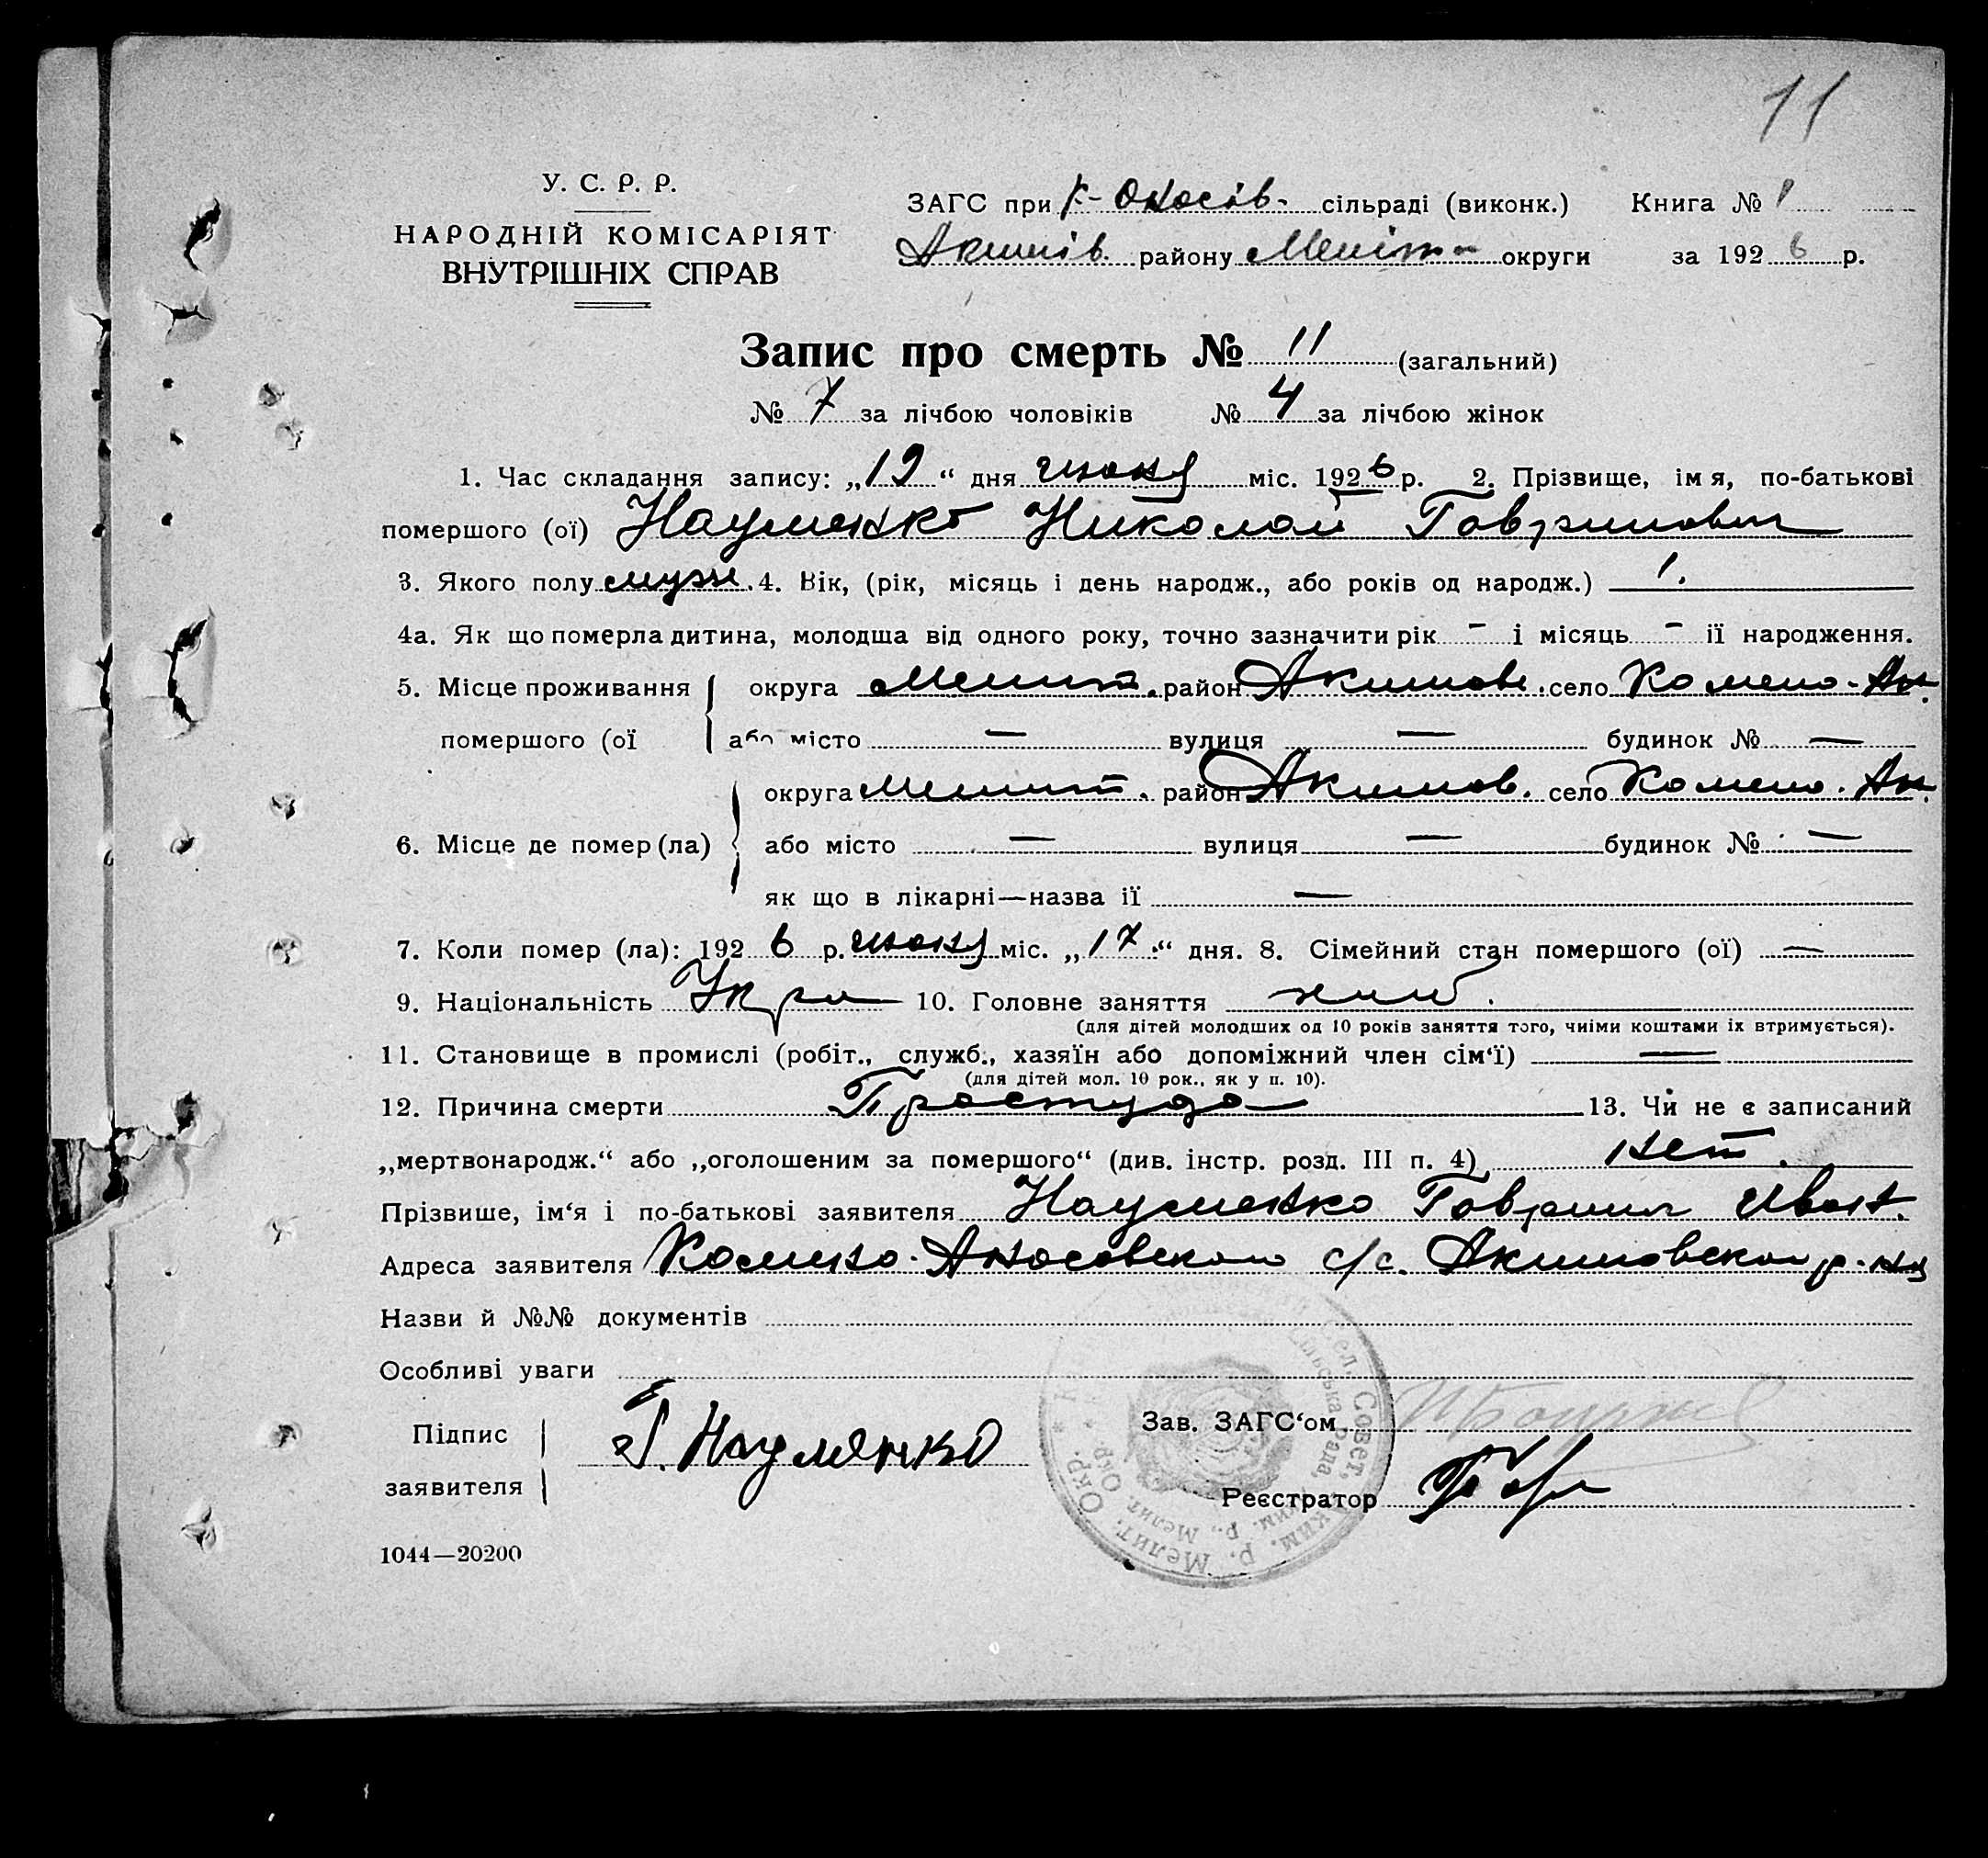 11
У. С. Р. Р.
НАРОДНІЙ КОМІСАРІЯТ
ВНУТРІШНІХ СПРАВ
ЗАГС при К-Оносів. сільраді (виконк.) Книга № 1
Акимів. району Меліт округи за 1926 р.
Запис про смерть № 11 (загальний)
№ 7 за лічбою чоловіків № 4 за лічбою жінок
1. Час складання запису: „19“ дня июня міс. 1926 р. 2. Прізвище, імя, по-батькові
помершого (ої) Науменко Николай Гаврилович
3. Якого полу муж. 4. Вік, (рік, місяць і день народж., або років од народж.) 1.
4а. Як що померла дитина, молодша від одного року, точно зазначити рік - і місяць - ії народження.
5. Місце проживання округа Мелит. район Акимов. село Комено-Ан.
помершого (ої або місто — вулиця — будинок № —
округа Мелит. район Акимов. село Комено. Ан.
6. Місце де помер (ла) або місто — вулиця — будинок № —
як що в лікарні—назва ії —
7. Коли помер (ла): 1926 р. июня міс. „17“ дня. 8. Сімейний стан помершого (ої) —
9. Національність Укра 10. Головне заняття
(для дітей молодших од 10 років заняття того, чиїми коштами їх втримується).
11. Становище в промислі (робіт., служб., хазяїн або допоміжний член сім‘ї) —
(для дітей мол. 10 рок., як у п. 10).
12. Причина смерти Простуда 13. Чи не є записаний
„мертвонародж.“ або „оголошеним за помершого“ (див. інстр. розд. III п. 4) нет.
Прізвише, ім‘я і по-батькові заявителя Науменко Гаврил Иван.
Адреса заявителя Камено-Аносовского с/с. Акимовского р-на
Назви й №№ документів
Особливі уваги
Підпис заявителя Г. Наумянко
Зав. ЗАГС‘ом
Реєстратор
Сел. Совет, Аким. р. Мелит. Окр.
Сільська Рада, Аким. р., Мелит. Окр.
1044—20200